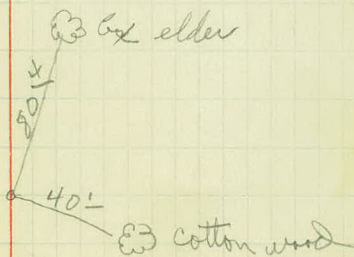 box elder
80'±
40'±
cotton wood